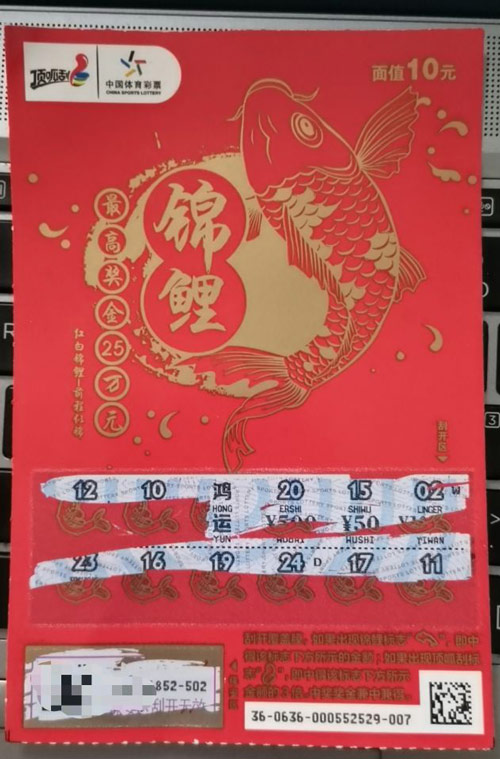 顶呱刮
中国体育彩票
CHINA SPORTS LOTTERY
面值10元
锦鲤
最高奖金25万元
红白锦鲤—前程似锦
刮开区
12 10 鸿 20 15 02 W
HONG ERSHI SHIWU LINGER
运 ¥500 ¥50
YUN WUBAI WUSHI YIWAN
23 16 19 24 D 17 11
刮开覆盖膜，如果出现锦鲤标志“ ”，即中
得该标志下方所示的金额；如果出现顶呱刮标
志“ ”，即中得该标志下方所示
金额的
中奖奖金兼中兼得。
852-502
刮开无效
36-0636-000552529-007